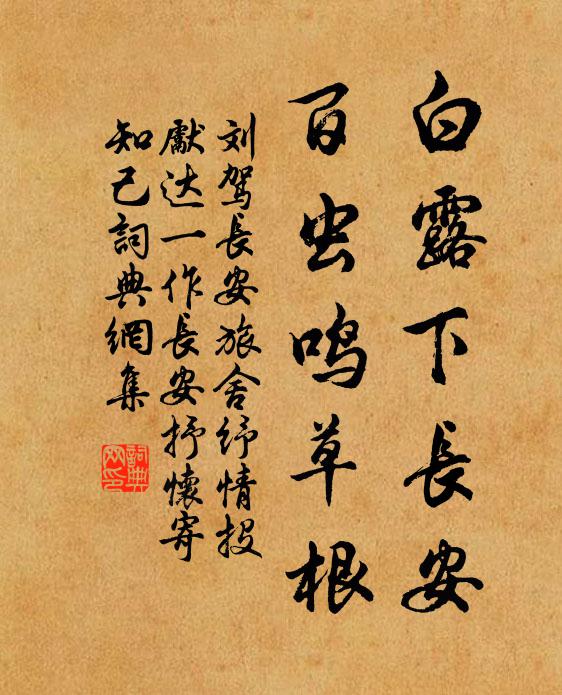 白露下長安
百虫鸣草根
刘驾長安旅舍纾情投
獻达一作長安抒懷寄
知己詞典網集
詞典网印